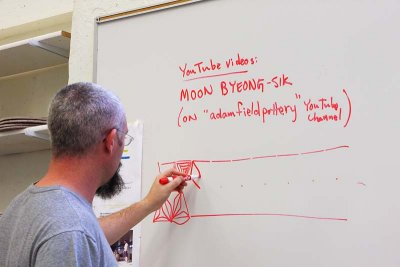 YouTube videos:
MOON BYEONG-SIK
(ON "adamfieldpottery" YouTube
channel)